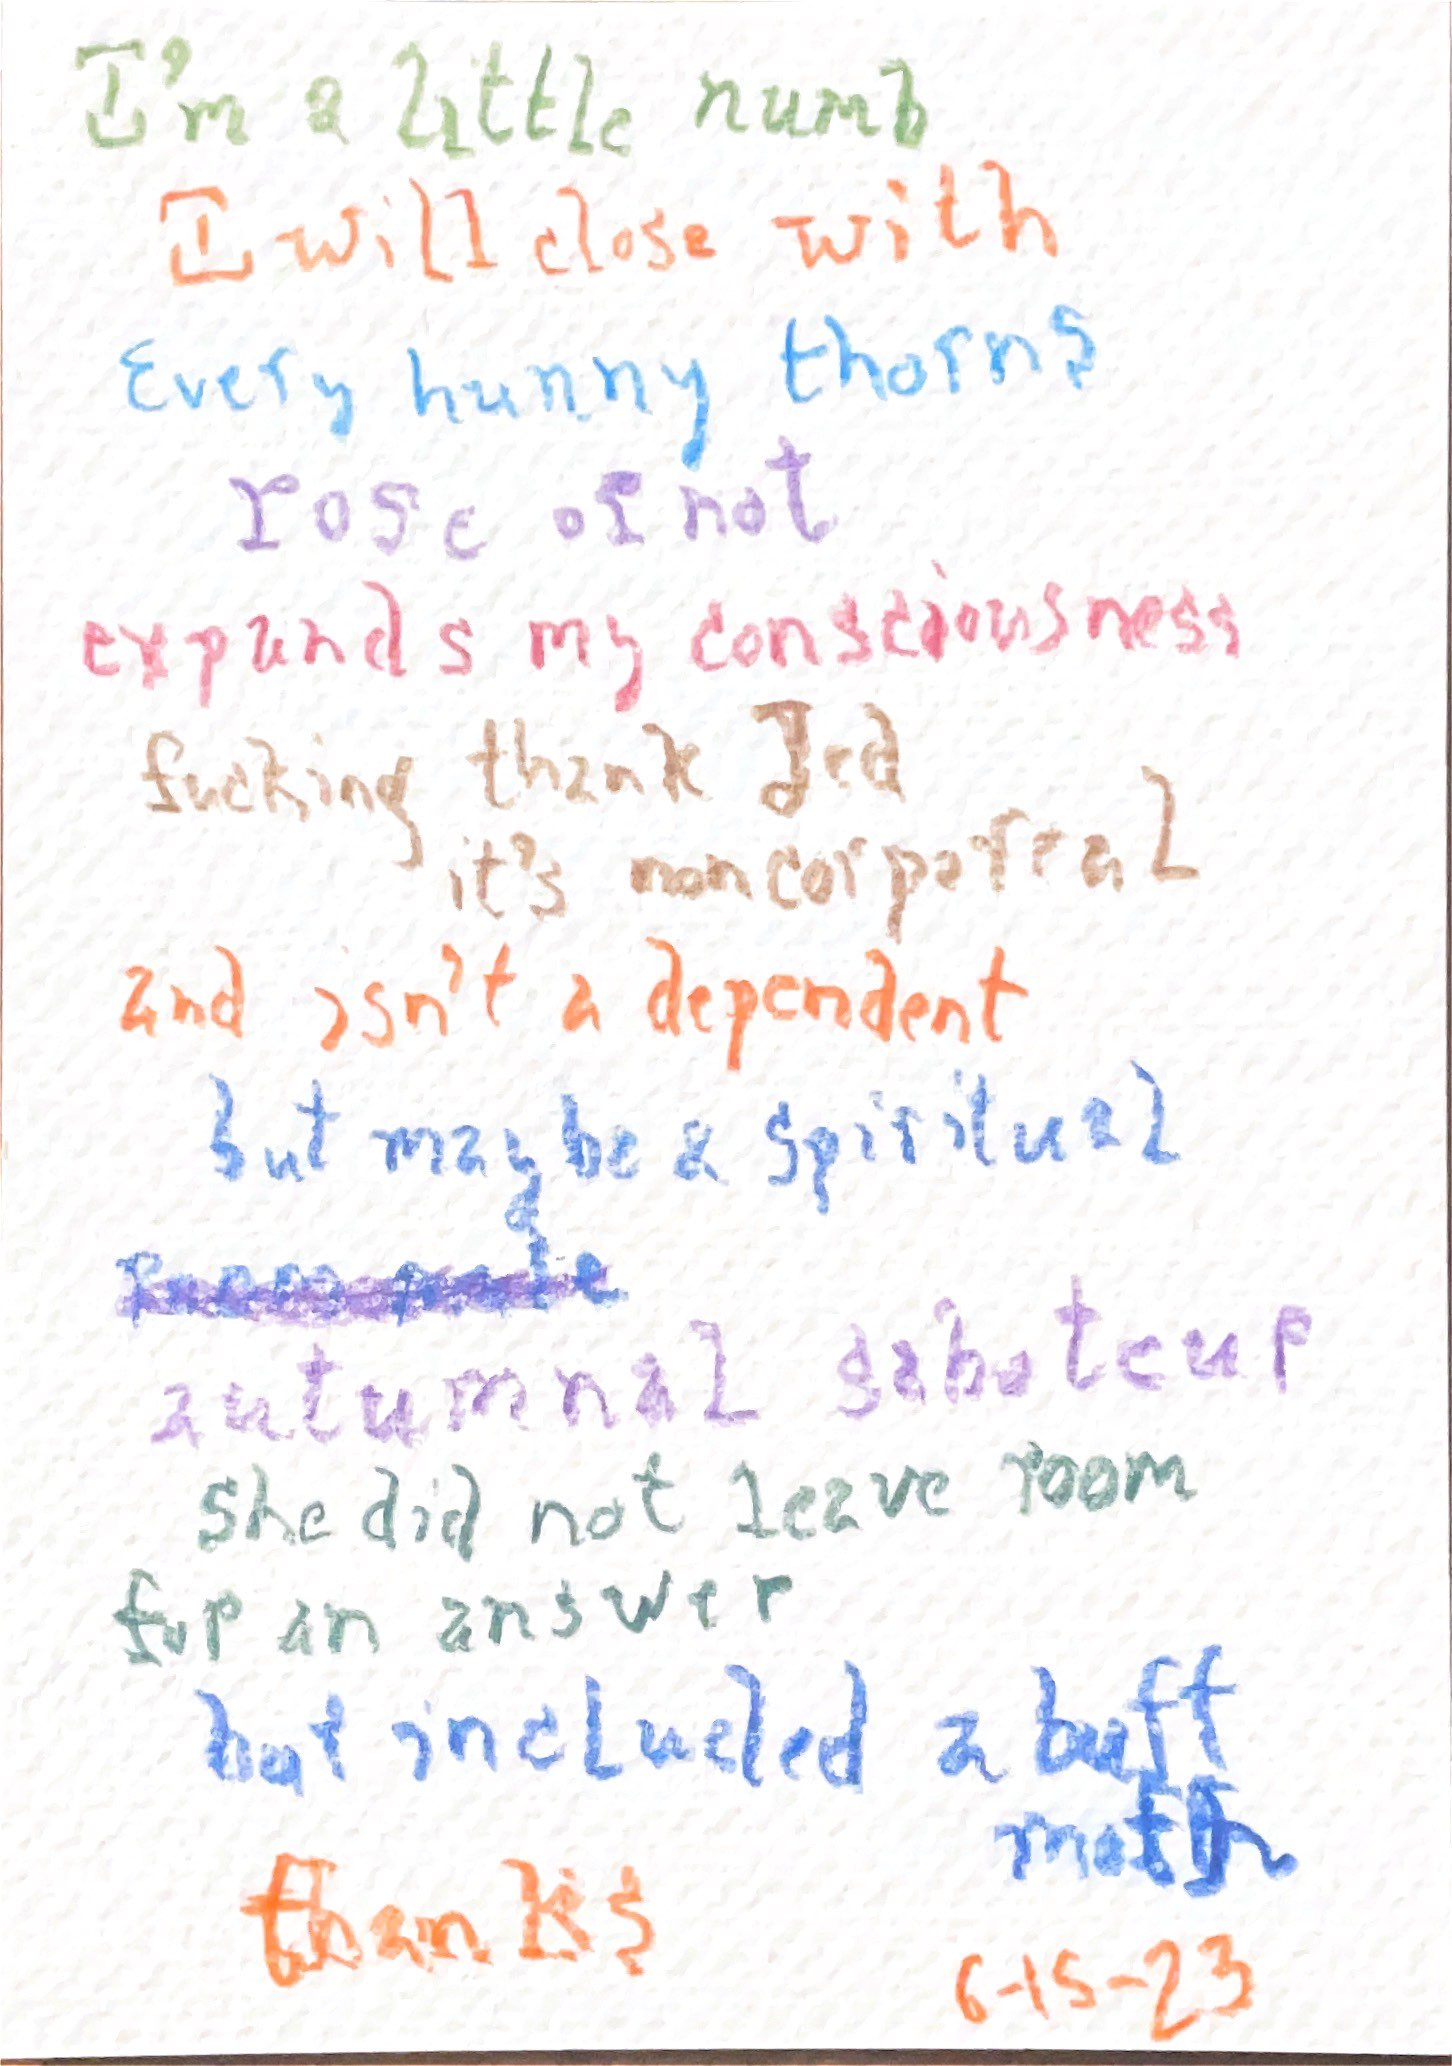 I'm a little numb
I will close with
Every hunny thorns
rose or not
expands my consciousness
fucking thank Jed
it's noncorporeal
and isn't a dependent
but maybe a spiritual
autumnal saboteur
she did not leave room
for an answer
but included a buff
moth
thanks
6-15-23